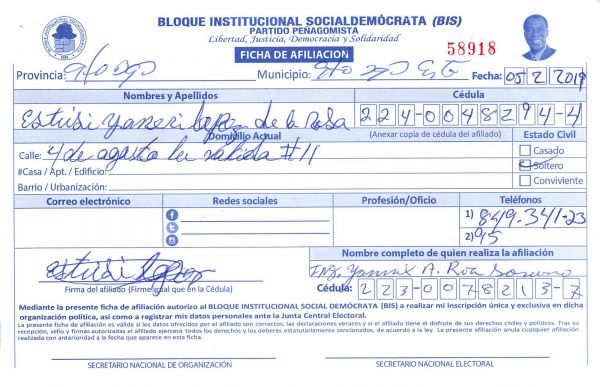 BLOQUE INSTITUCIONAL SOCIALDEMÓCRATA (BIS)
PARTIDO PEÑAGOMISTA
Libertad, Justicia, Democracia y Solidaridad
FICHA DE AFILIACIÓN
58918
Provincia: Sto Dgo Municipio: Sto Dgo Este Fecha: 05/2/2019
Nombres y Apellidos Cédula
Estiisi Yaneri Lopez de la Rosa 224-0048294-4
Domicilio Actual (Anexar copia de cédula del afiliado) Estado Civil
Calle: 4 de agosto la salida #11
Casado
#Casa / Apt. / Edificio: Soltero
Barrio / Urbanización: Conviviente
Correo electrónico Redes sociales Profesión/Oficio Teléfonos
1) 849-341-23
2) 95
Nombre completo de quien realiza la afiliación
Estiisi Lopez Ing. A. Roa
Firma del afiliado (Firme igual que en la Cédula) Cédula: 223-0078213-7
Mediante la presente ficha de afiliación autorizo al BLOQUE INSTITUCIONAL SOCIAL DEMÓCRATA (BIS) a realizar mi inscripción única y exclusiva en dicha
organización política, así como a registrar mis datos personales ante la Junta Central Electoral.
La presente ficha de afiliación es válida si los datos ofrecidos por el afiliado son correctos, las declaraciones veraces y si el afiliado tiene el disfrute de sus derechos civiles y políticos. Tras su
recepción, sello y firmas autorizadas el afiliado ejercerá todos los derechos y los deberes estatutariamente sancionados, de acuerdo a la ley. La presente afiliación anula cualquier afiliación
realizada con anterioridad a la fecha que aparece en esta ficha.
SECRETARIO NACIONAL DE ORGANIZACIÓN SECRETARIO NACIONAL ELECTORAL